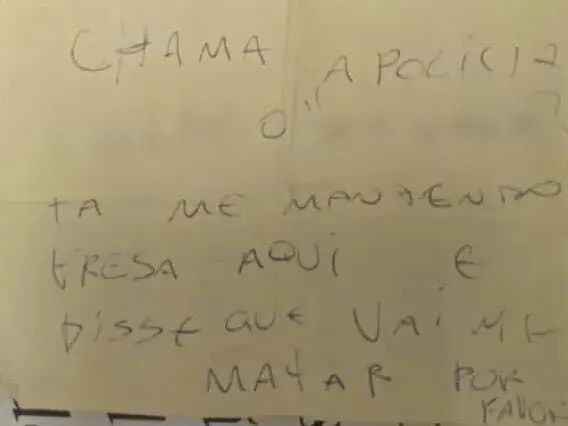 CHAMA A POLICIA
O "
TA ME MANTENDO
PRESA AQUI E
DISSE QUE VAI ME
MATAR POR
FAVOR